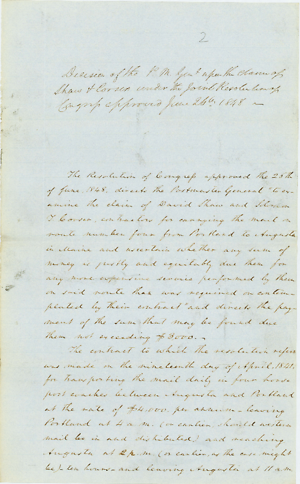 2
Decision of the P. M. Genl upon the claim of
Shaw & Corser under the Joint Resolution of
Congress approved June 26th 1848 —
The Resolution of Congress approved the 26th
of June, 1848, directs the Postmaster General "to ex-
amine the claim of David Shaw and
T. Corser, contractors for carrying the mail on
route number four from Portland to Augusta
in Maine and ascertain whether any sum of
money is justly and equitably due them for
any more expensive service performed by them
on said route than was required or contem-
plated by their contract" and directs the pay-
ment of the sum that may be found due
them not exceeding $3,000. —
The contract to which the resolution refers
was made on the nineteenth day of April, 1841,
for transporting the mail daily in four horse
post coaches between Augusta and Portland
at the rate of per annum — leaving
Portland at 4 a.m. (or earlier should western
mail be in and distributed) and reaching
Augusta at 2 p.m. (or earlier as the case might
be) ten hours and leaving Augusta at 11 a.m